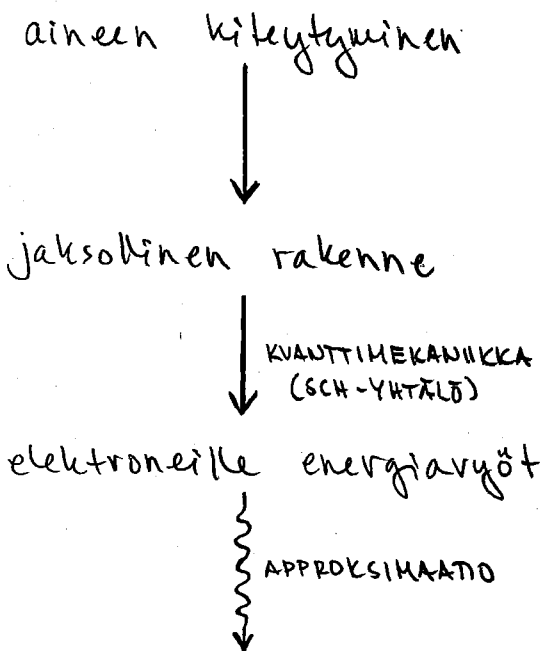 aineen kiteytyminen
jaksollinen rakenne
KVANTTIMEKANIIKKA
(SCH-YHTÄLÖ)
elektroneille energiavyöt
APPROKSIMAATIO